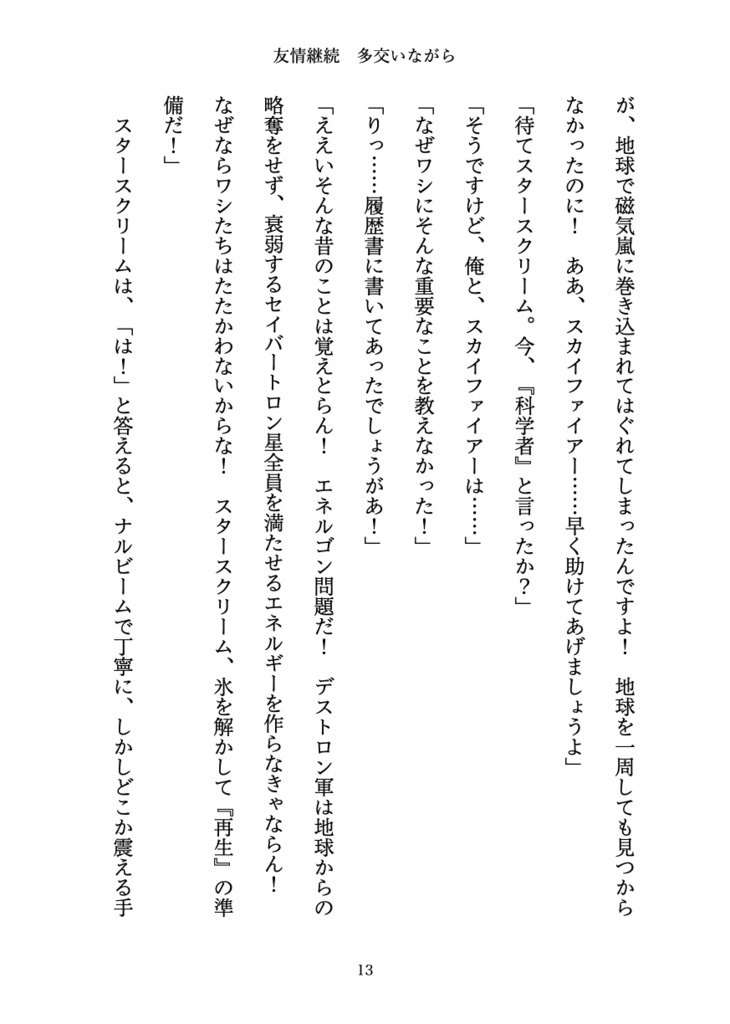 友情継続　多交いながら
が、地球で磁気嵐に巻き込まれてはぐれてしまったんですよ！　地球を一周しても見つから
なかったのに！　ああ、スカイファイアー……早く助けてあげましょうよ」
「待てスタースクリーム。今、『科学者』と言ったか？」
「そうですけど、俺と、スカイファイアーは……」
「なぜワシにそんな重要なことを教えなかった！」
「りっ……履歴書に書いてあったでしょうがあ！」
「ええいそんな昔のことは覚えとらん！　エネルゴン問題だ！　デストロン軍は地球からの
略奪をせず、衰弱するセイバートロン星全員を満たせるエネルギーを作らなきゃならん！
なぜならワシたちはたたかわないからな！　スタースクリーム、氷を解かして『再生』の準
備だ！」
　スタースクリームは、「は！」と答えると、ナルビームで丁寧に、しかしどこか震える手
13